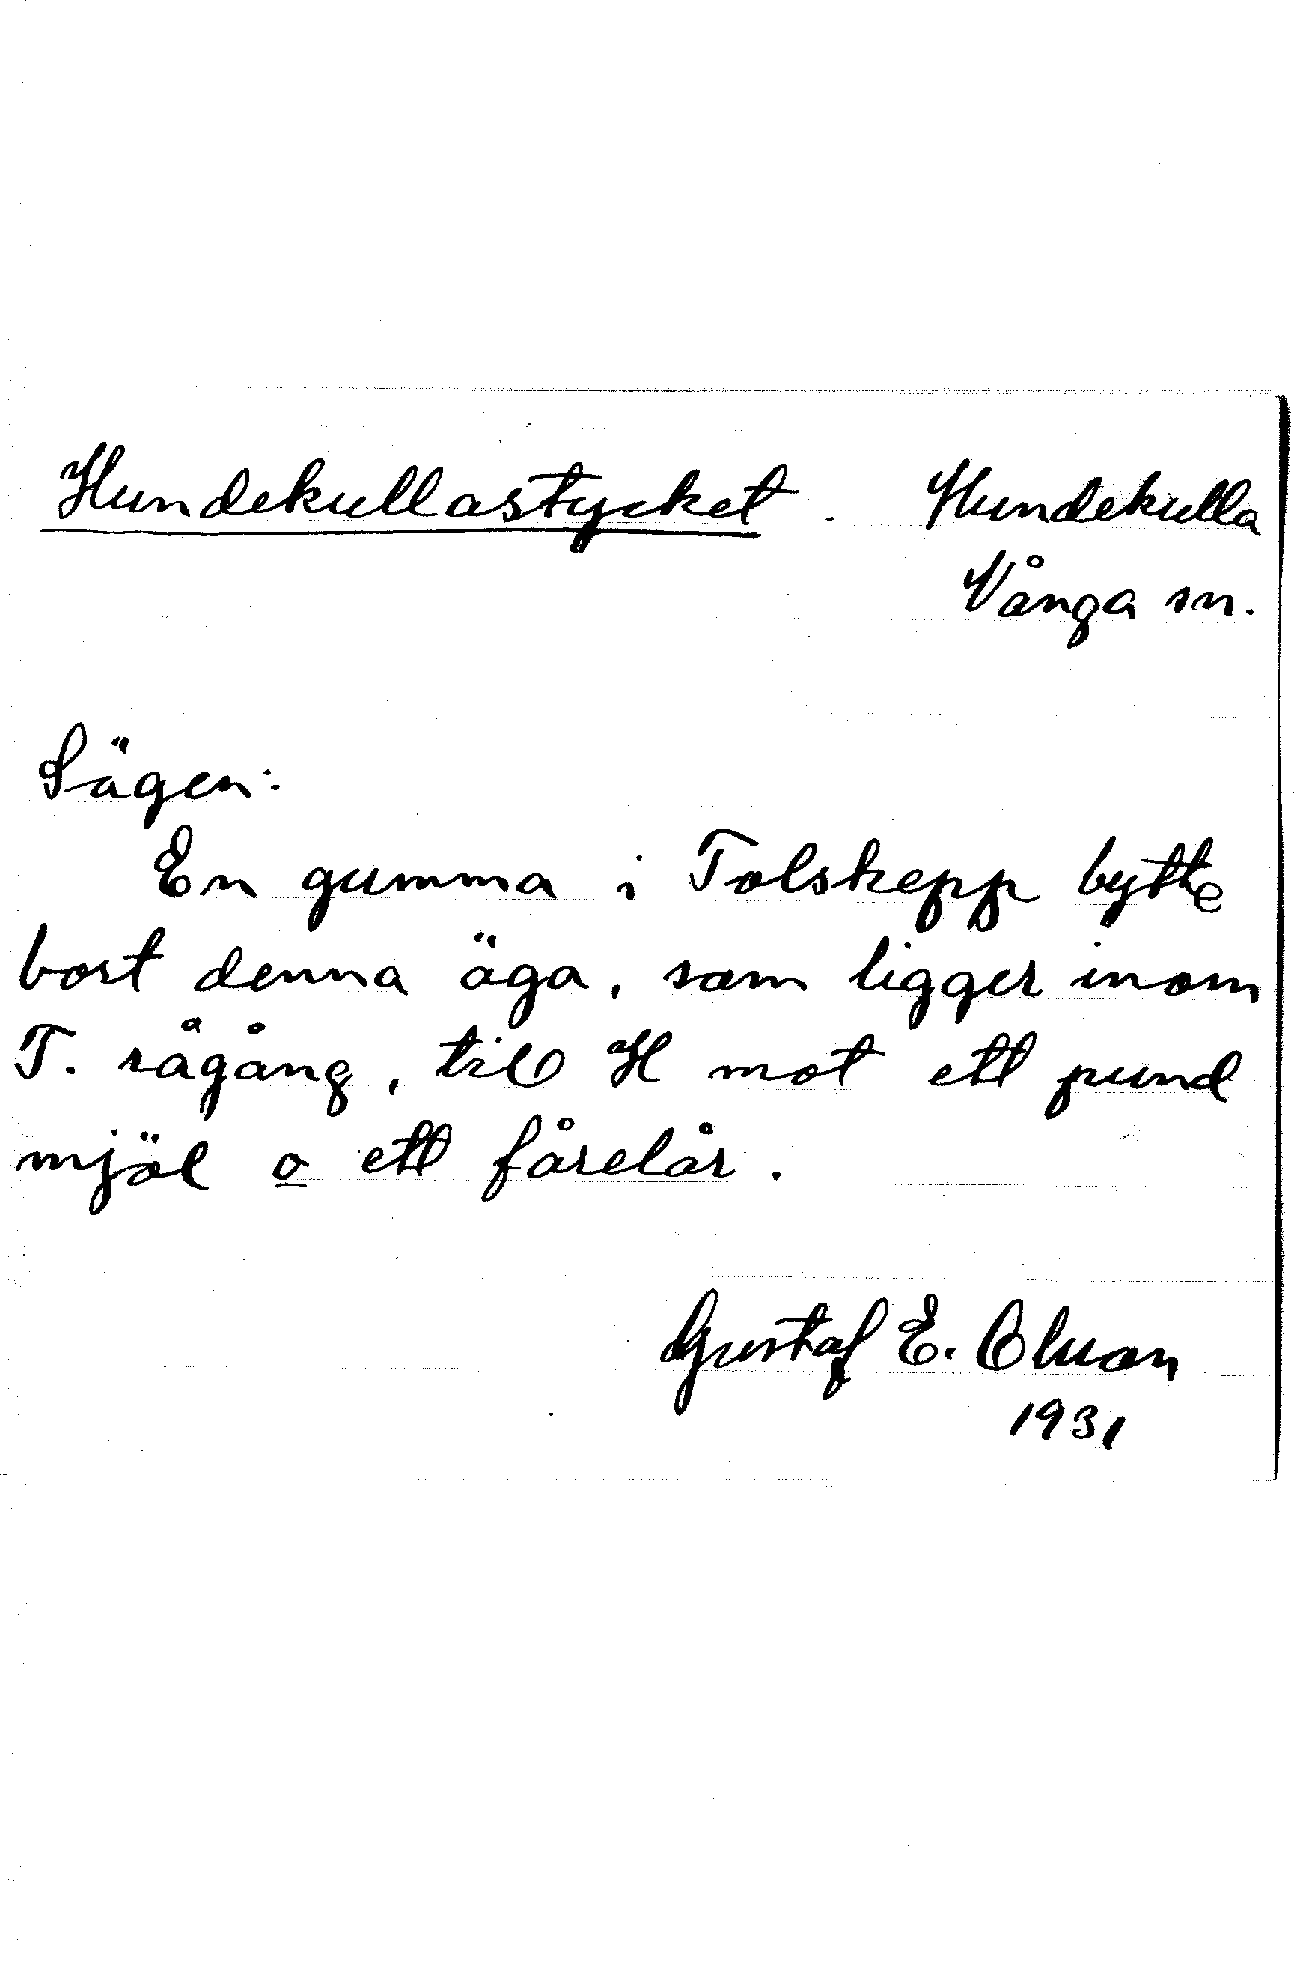 Hundekullastycket. Hundekulla
Vånga sn.
Sägen:
En gumma i Tolskepp bytte
bort denna äga, som ligger inom
T. rågång, till H mot ett pund
mjöl o ett fårelår.
Gustaf E. Olsson
1931